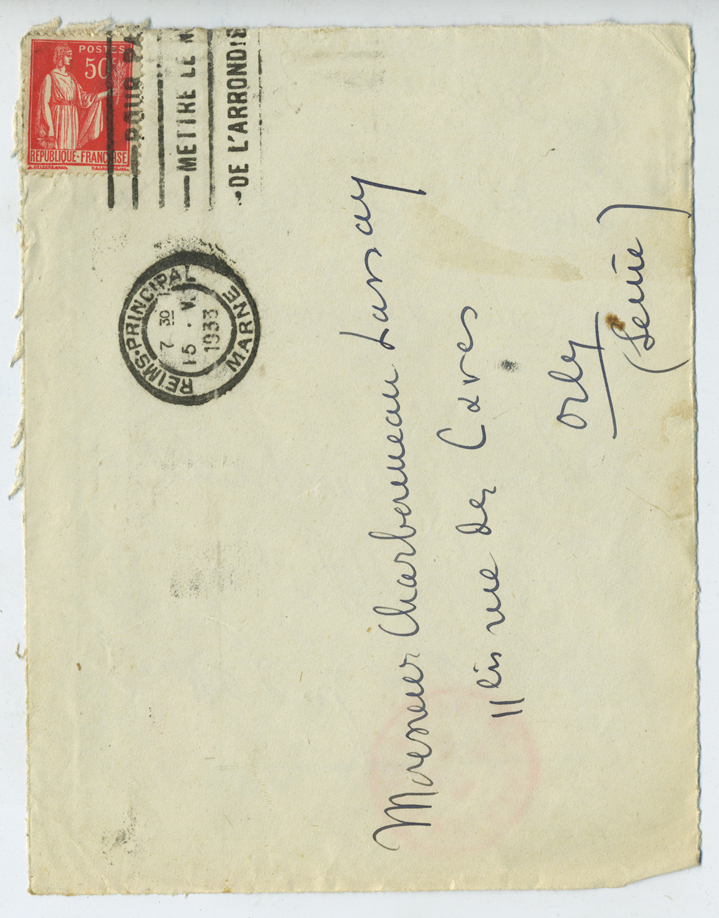 POSTES
50c
RÉPUBLIQUE-FRANÇAISE
POUR PA
METTRE LE N
DE L'ARRONDIS
REIMS-PRINCIPAL
7 30
15 · VI
1933
MARNE
Monsieur Charbonneau Lassay
11 bis rue des Caves
Orly
(Seine)